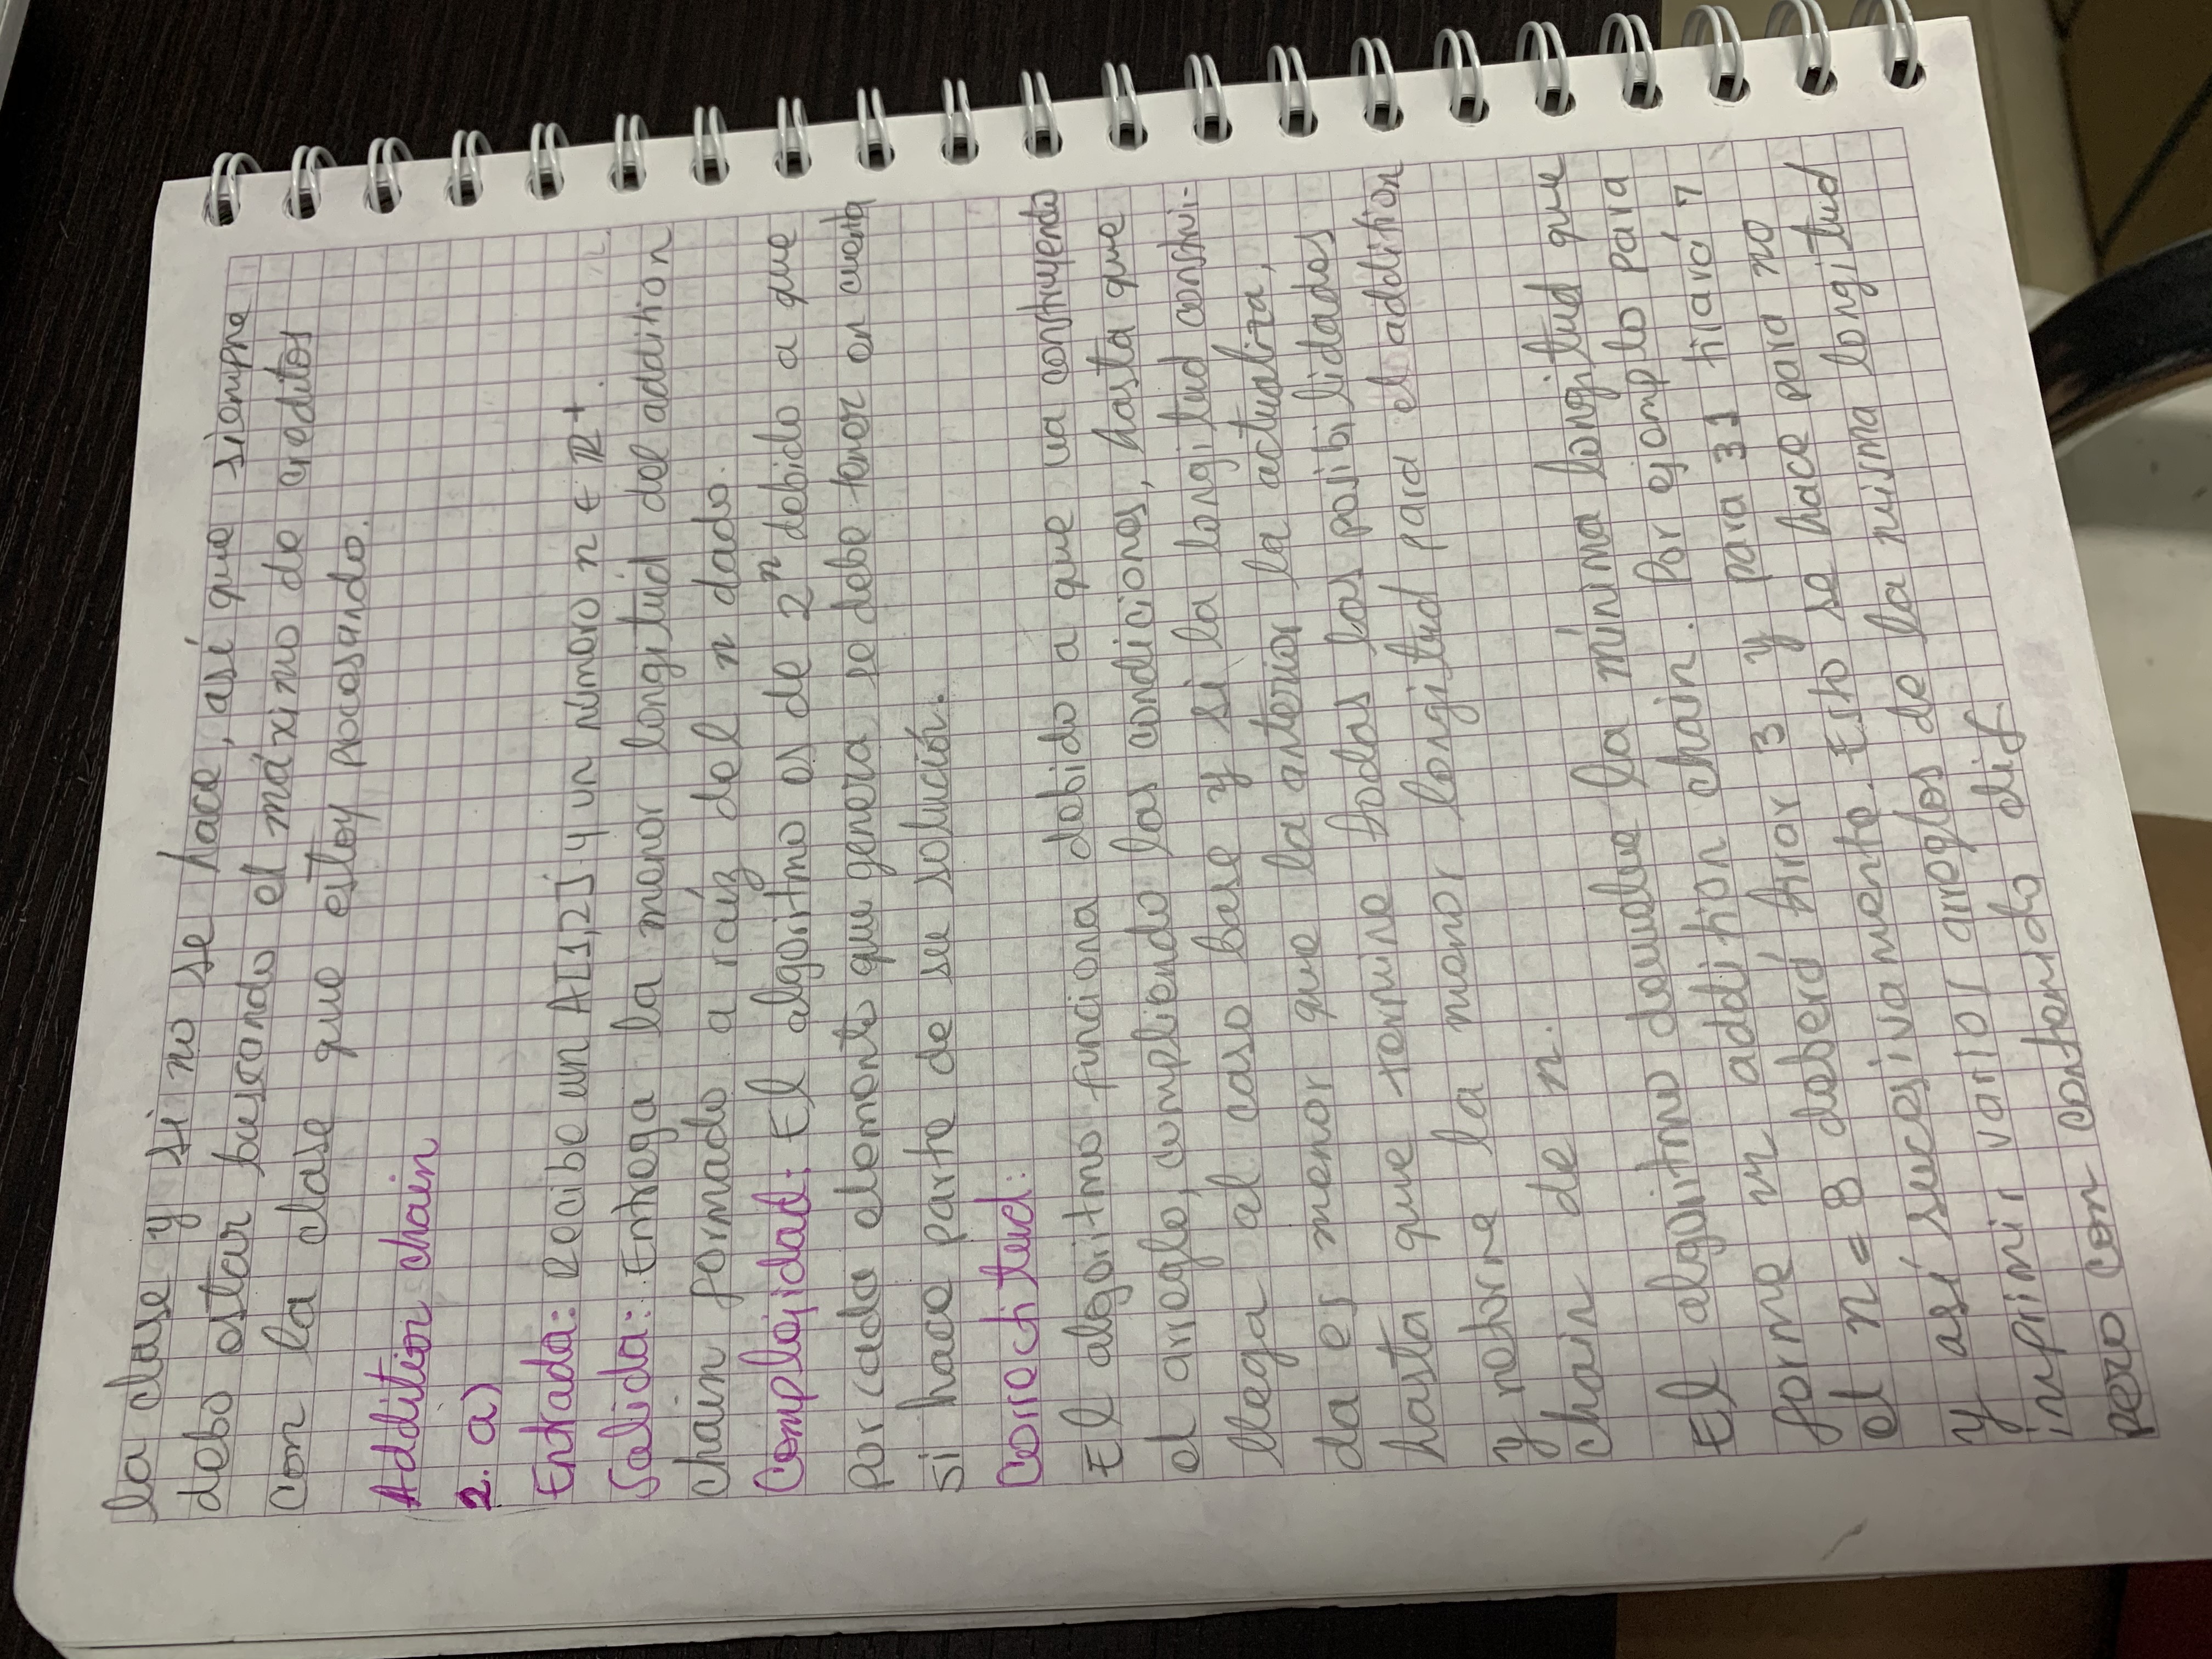 la clase y si no se hace, así que siempre
debo estar buscando el máximo de creditos
con la clase que estoy procesando.
Addition chain
2. a)
Entrada: Recibe un A[1,2] y un número n ∈ ℝ+.
Salida: Entrega la menor longitud del addition
chain formado a raíz del n dado.
Complejidad: El algoritmo es de 2ⁿ debido a que
por cada elemento que genera se debe tener en cuenta
si hace parte de su solución.
Correctitud:
El algoritmo funciona debido a que va construyendo
el arreglo, cumpliendo las condiciones, hasta que
llega al caso base y si la longitud construi-
da es menor que la anterior la actualiza,
hasta que termine todas las posibilidades
y retorne la menor longitud para el addition
chain de n.
El algoritmo devuelve la mínima longitud que
forme un addition chain. Por ejemplo para
el n = 8 deberá tirar 3 y para 31 tirará 7
y así sucesivamente. Esto se hace para no
imprimir varios arreglos de la misma longitud
pero con contenido dif.